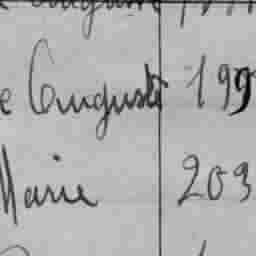 e Auguste 199
Marie 203